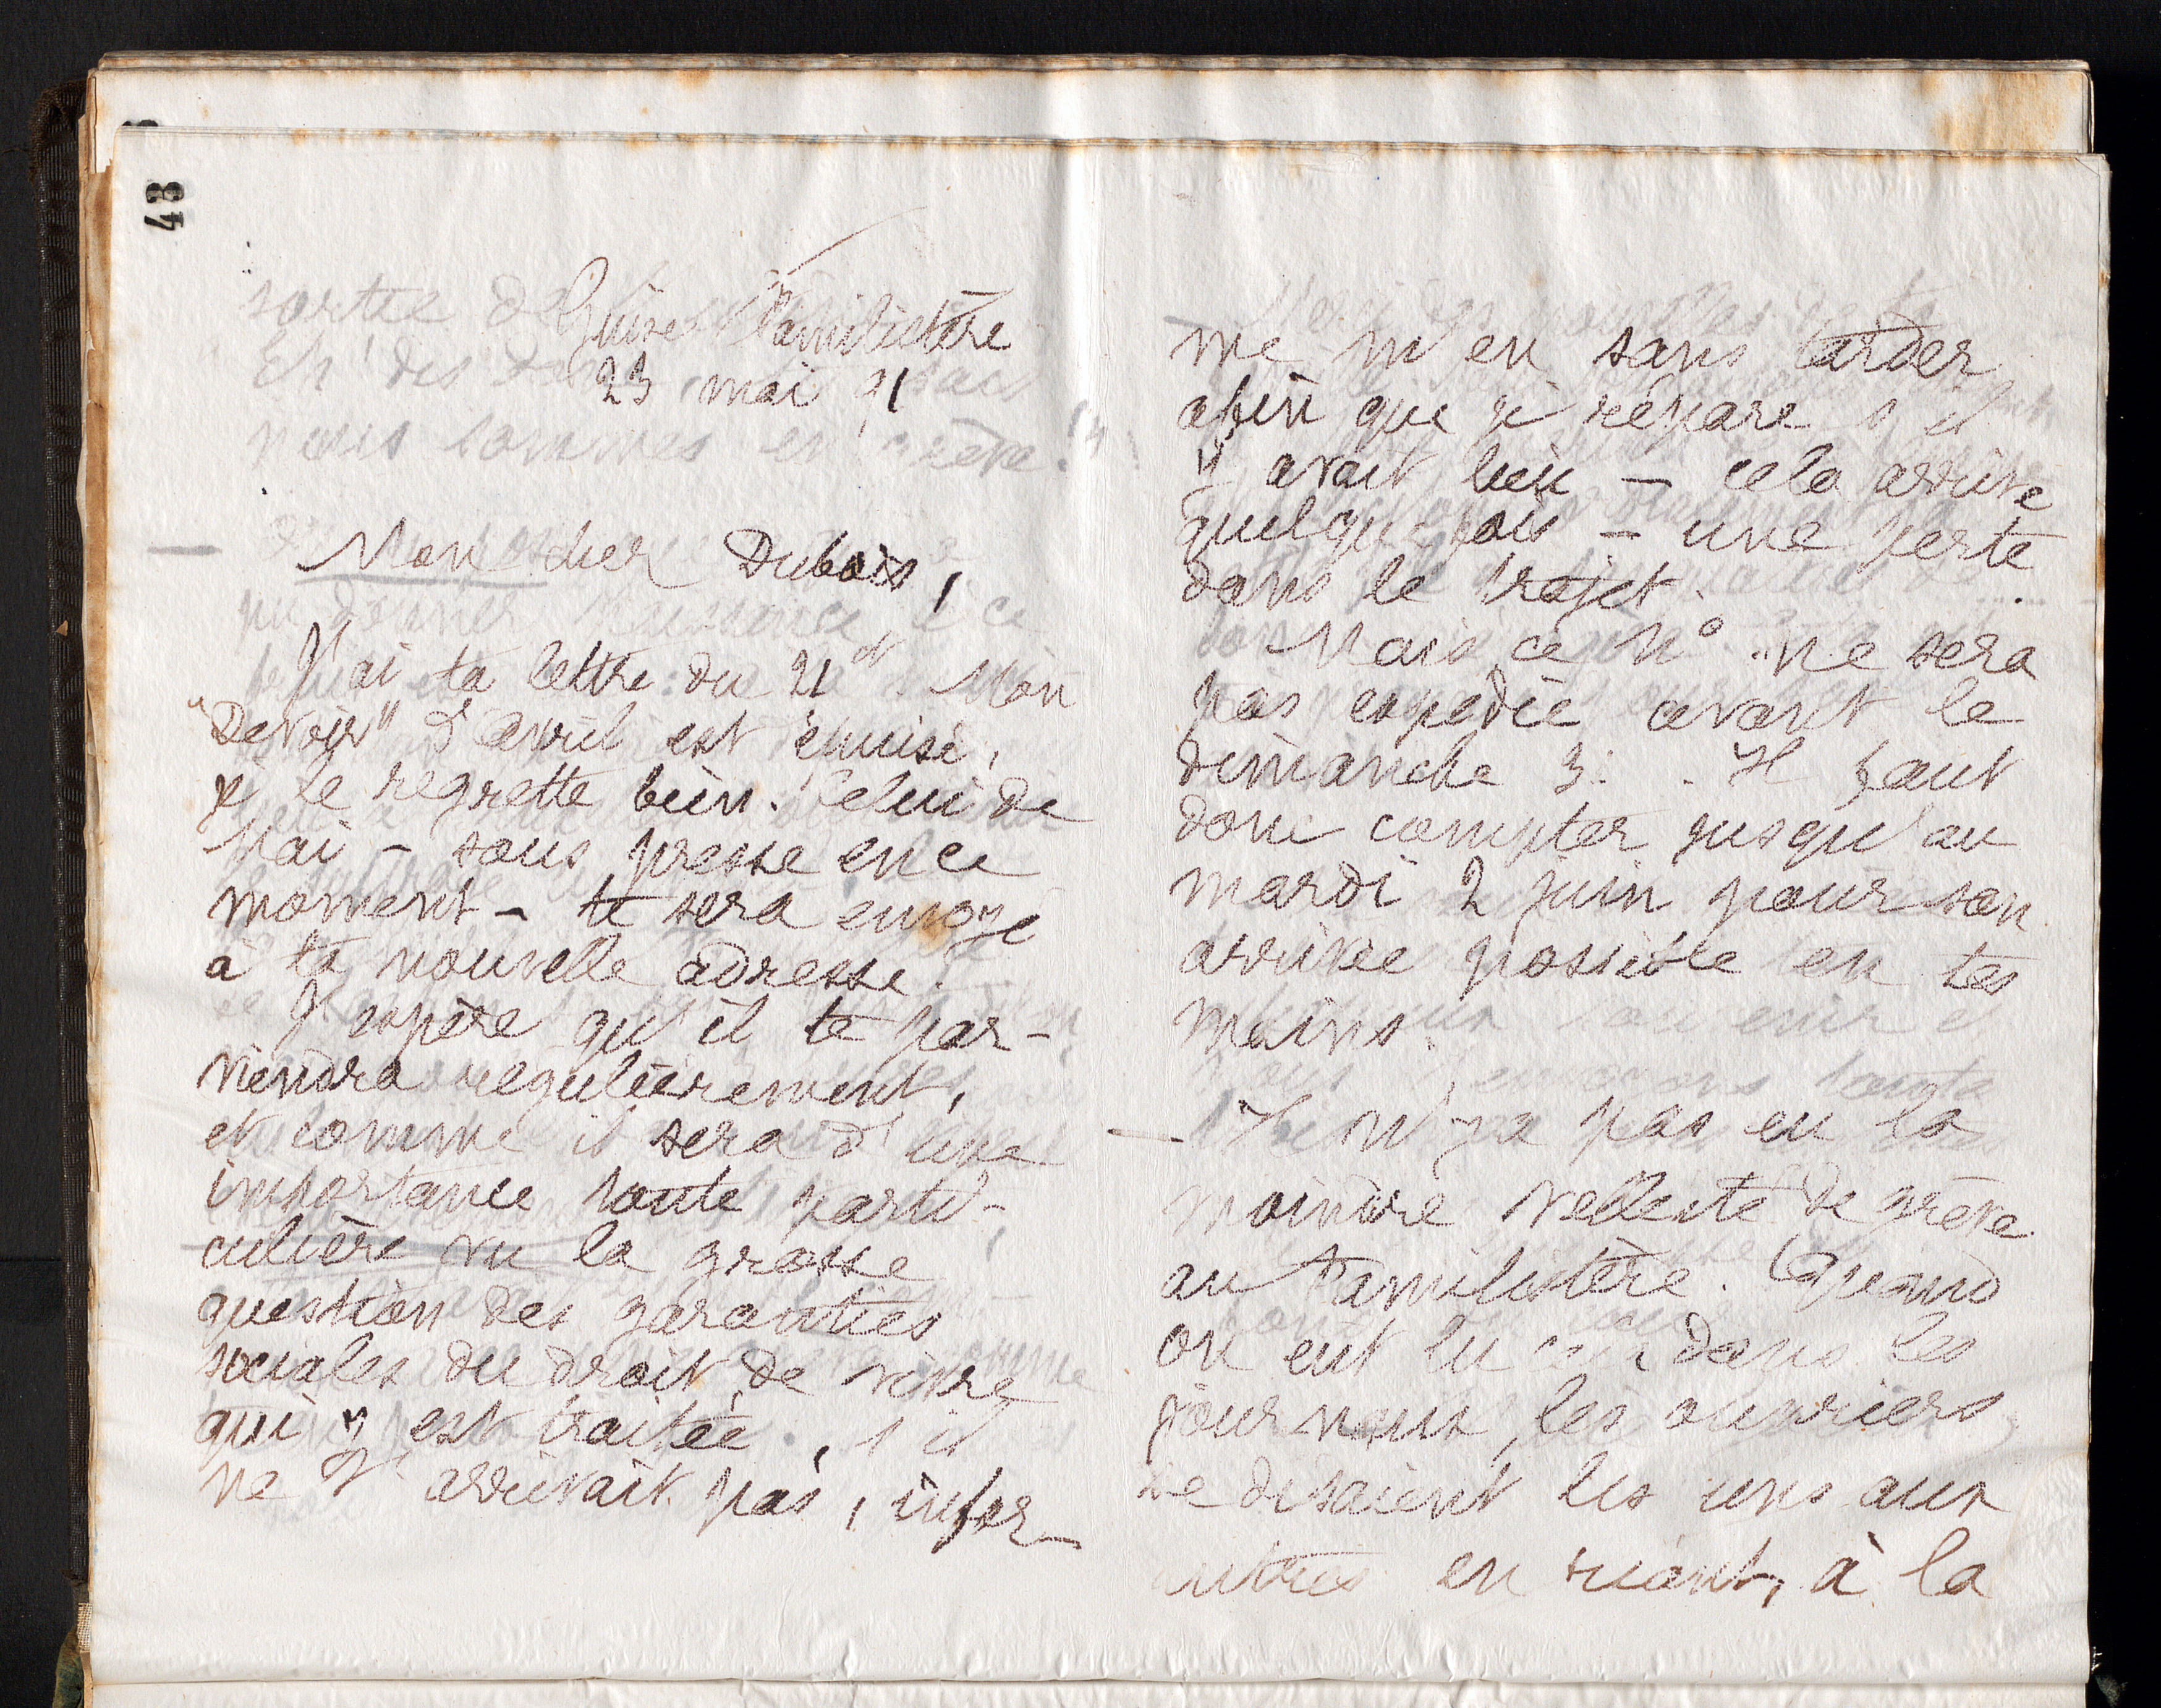 43
Guise Familistère
23 mai 91
Mon cher Dubois,
J'ai ta lettre du 21 et. Mon
"Devoir" d'avril est épuisé,
je le regrette bien. Celui de
Mai - sous presse en ce
moment - te sera envoyé
à ta nouvelle adresse.
J'espère qu'il te par-
viendra régulièrement,
et comme il sera d'une
importance toute parti-
culière vu la grosse
question des garanties
sociales du droit de vivre
qui y est traitée, s'il
ne t'arrivait pas, infor-
me m'en sans tarder
afin que je répare s'il
y avait lieu - cela arrive
quelquefois - une perte
dans le trajet.
Mais ce No ne sera
pas expédié avant le
dimanche 31. Il faut
donc compter jusqu'au
mardi 2 juin pour son
arrivée possible en tes
mains.
Il n'y a pas eu la
moindre velléité de grève
au Familistère. Quand
on eut lu dans les
journaux, les ouvriers
se disaient les uns aux
autres en riant, à la